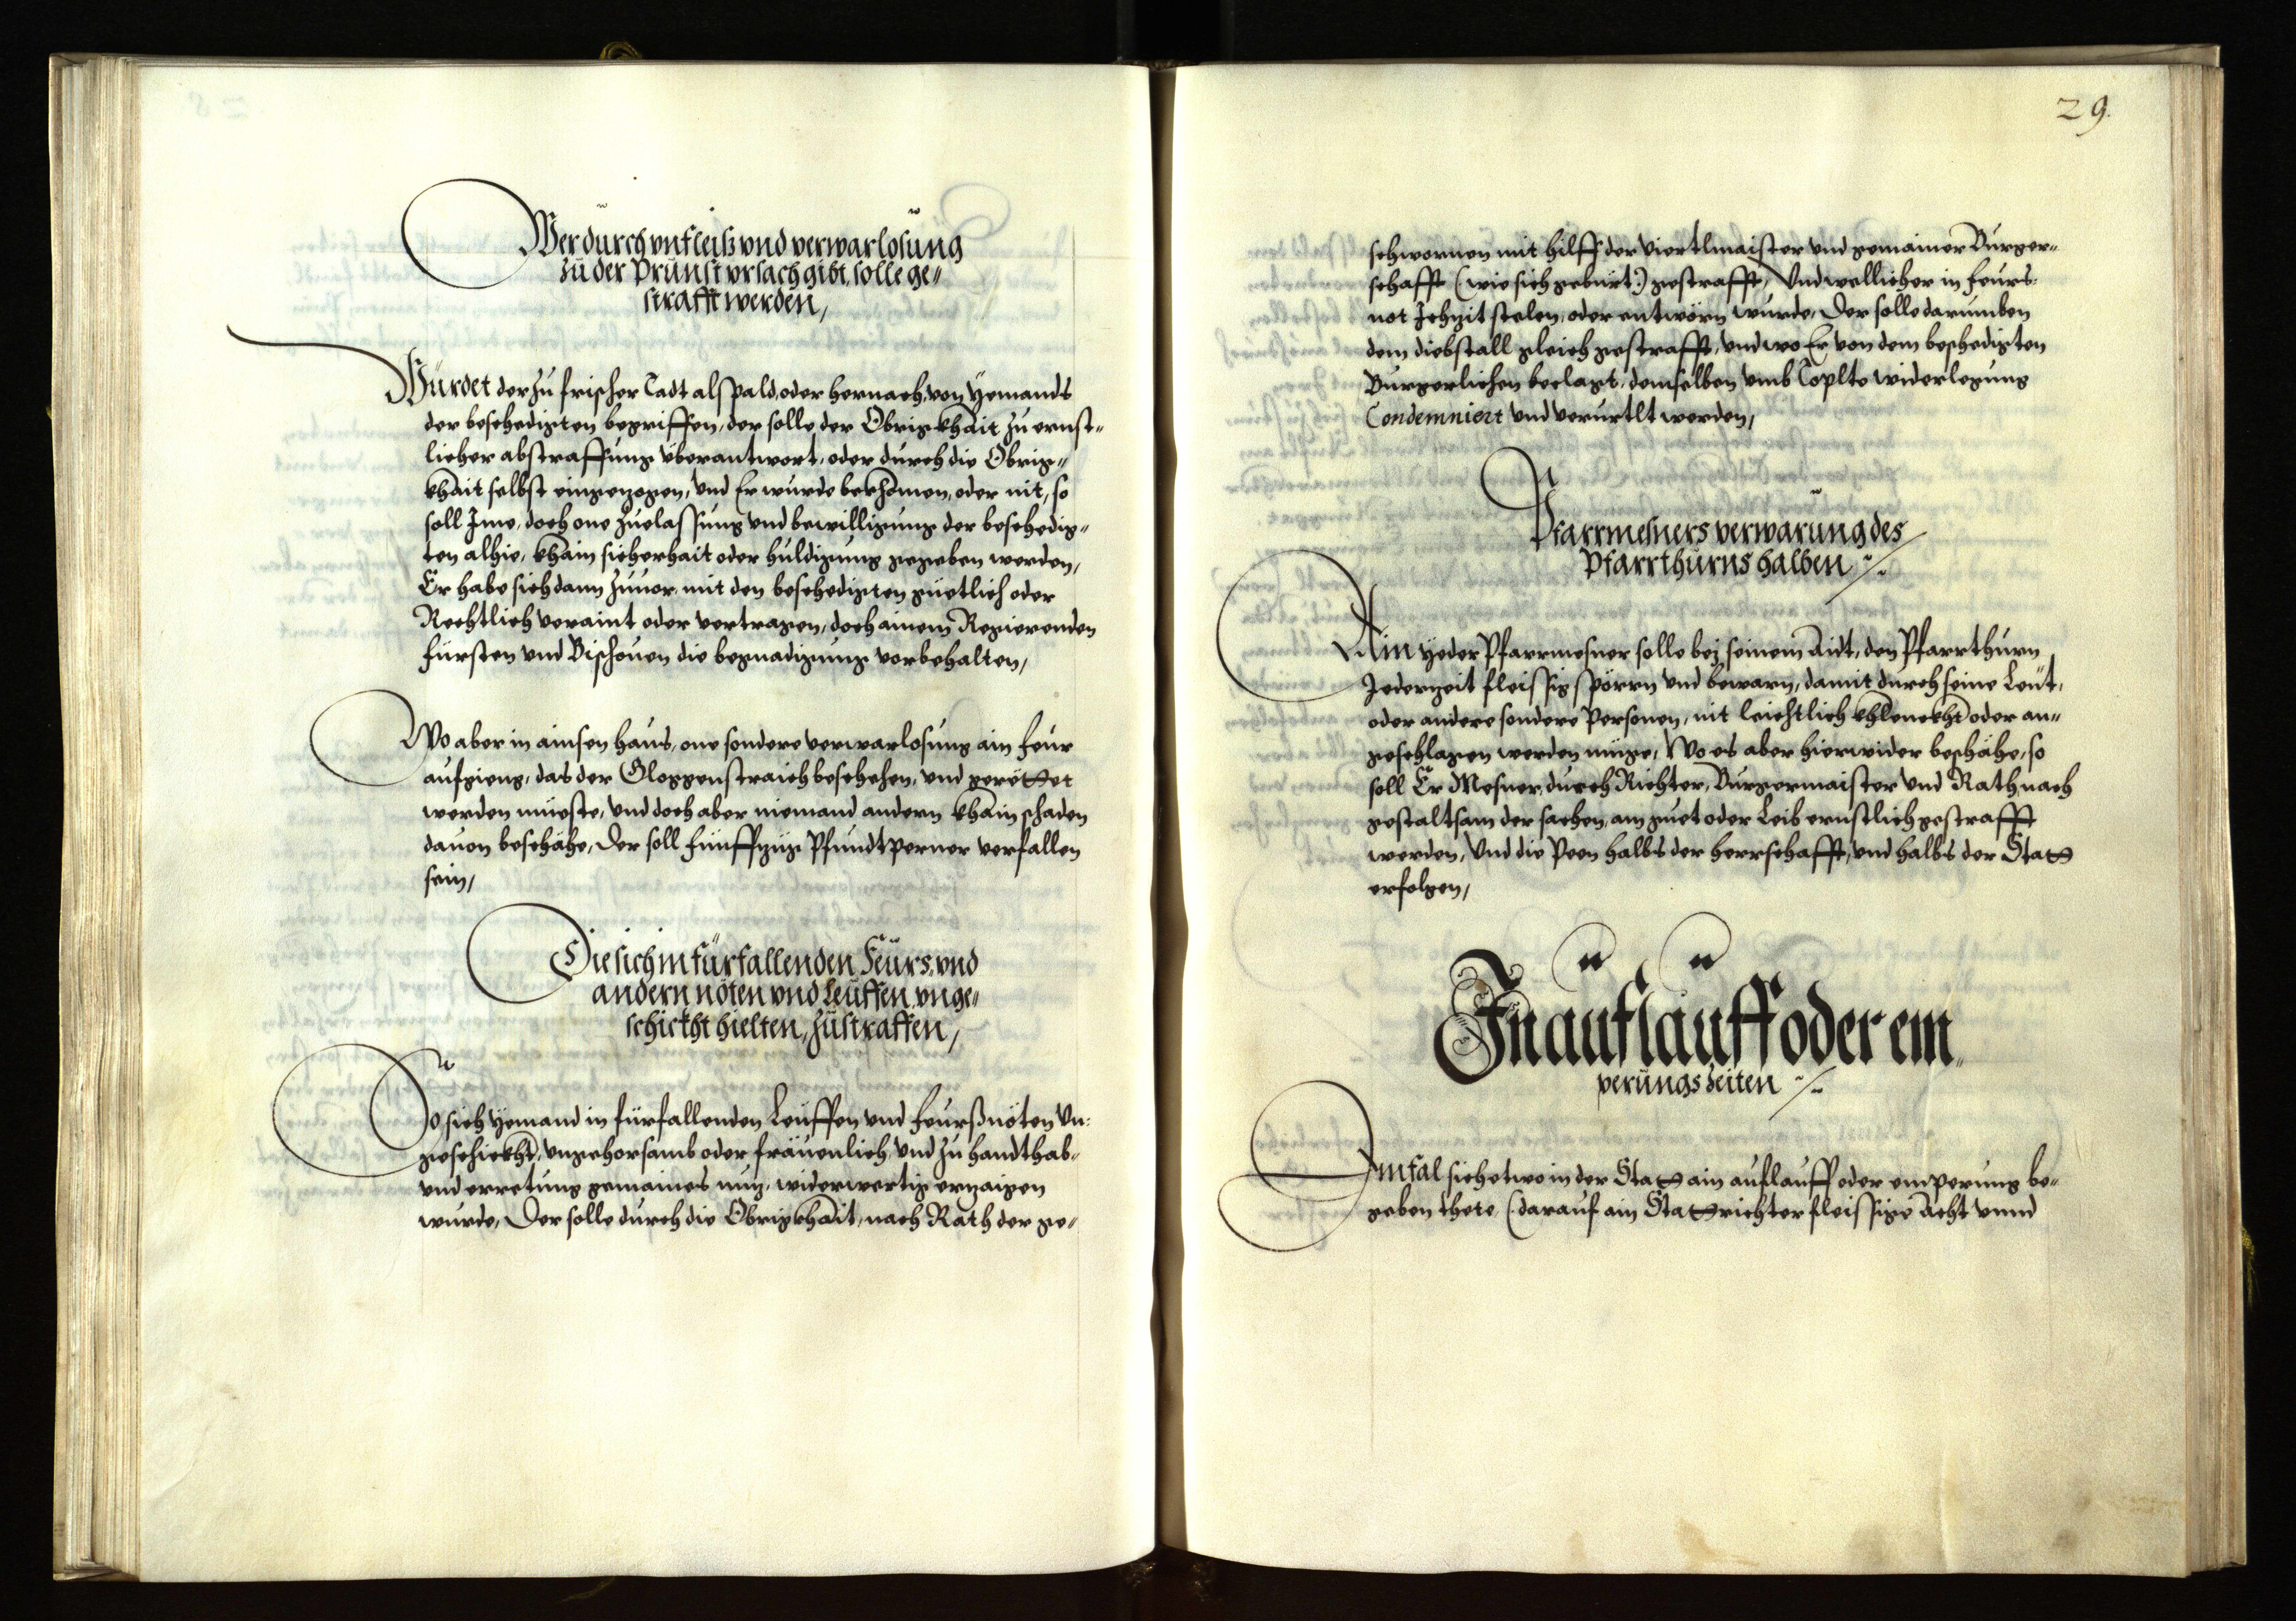 Wer durch vnfleiß vnd verwarlosung
zu der Prunst vrsach gibt, solle ge=
strafft werden,
Würdet der zu frischer Tadt als pald, oder hernach, von yemands
der beschedigten begriffen, der solle der Obrigkhait zu ernst=
licher abstraffung überantwort, oder durch die Obrig=
khait selbst eingezogen, vnd Er wurde bekhomen, oder nit, so
soll Ime, doch one zuelassung vnd bewilligung der beschedig=
ten alhie, khain sicherhait oder huldigung gegeben werden,
Er habe sich dann zuuor, mit den beschedigten güetlich oder
Rechtlich veraint oder vertragen, doch ainem Regierenden
fürsten vnd Bischouen die begnadigung vorbehalten,
Wo aber in ainsen haus, one sondere verwarlosung ain feur
aufgieng, das der Gloggenstraich beschehen, vnd gerettet
werden müeste, vnd doch aber niemand andern khain schaden
dauon beschähe, Der soll fünffzig Pfundt perner verfallen
sein,
Die sich in fürfallenden Feurs, vnd
andern nöten vnd leuffen, vnge=
schickht hielten, zu straffen,
So sich yemand in fürfallenden Leuffen vnd feurßnöten Vn:
geschickht, vngehorsamb oder fräuenlich, vnd zu handthab=
vnd erretung gemaines nuz, widerwertig erzaigen
wurde, Der solle durch die Obrigkhait, nach Rath der ge=
29.
schwornen mit hilff der viertlmaister vnd gemainer Burger=
schafft (wie sich gebürt:) gestrafft, Vnd wellicher in feurs:
not Ichzit stelen, oder entwörn wurde, Der solle darumben
dem diebstall gleich gestrafft, vnd wo Er von dem beschedigten
Burgerlichen beclagt, demselben vmb Coplte widerlegung
Condemniert vnd verurtlt werden,
Pfarrmesners verwarung des
Pfarrthurns halben
Ain yeder Pfarrmesner solle bej seinem Aidt, den Pfarrthurn
Jederzeit fleissig spörrn vnd bewarn, damit durch seine Leut,
oder andere sondere Personen, nit leichtlich khlenckht oder an=
geschlagen werden müge, Wo es aber hierwider beschähe, so
soll Er Mesner, durch Richter, Burgermaister vnd Rath, nach
gestaltsam der sachen, am guet oder Leib ernstlich gestrafft
werden, Vnd die Peen halbs der herrschafft, vnd halbs der Statt
erfolgen,
In auflauff oder em=
perungs zeiten
Im fal sich etwo in der Statt ain auflauff oder emperung be=
geben thete, (darauf ain Stattrichter fleissige Acht vnnd